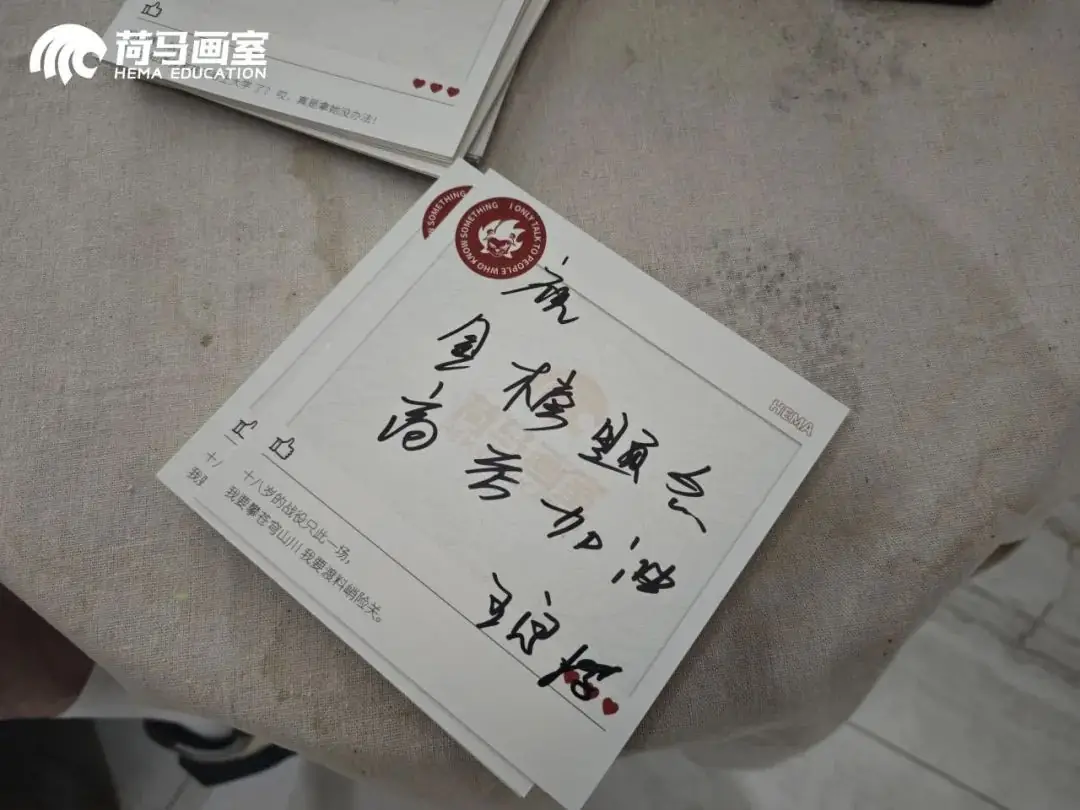 荷马画室
HEMA EDUCATION
大学了？哎，真是拿她没办法！
I ONLY TALK TO PEOPLE WHO KNOW SOMETHING
W SOMETHING
祝
金榜题名
高考加油
HEMA
荷马画室
十八岁的战役只此一场，
我要攀苍穹山川 我要渡料峭险关。
十八
我要